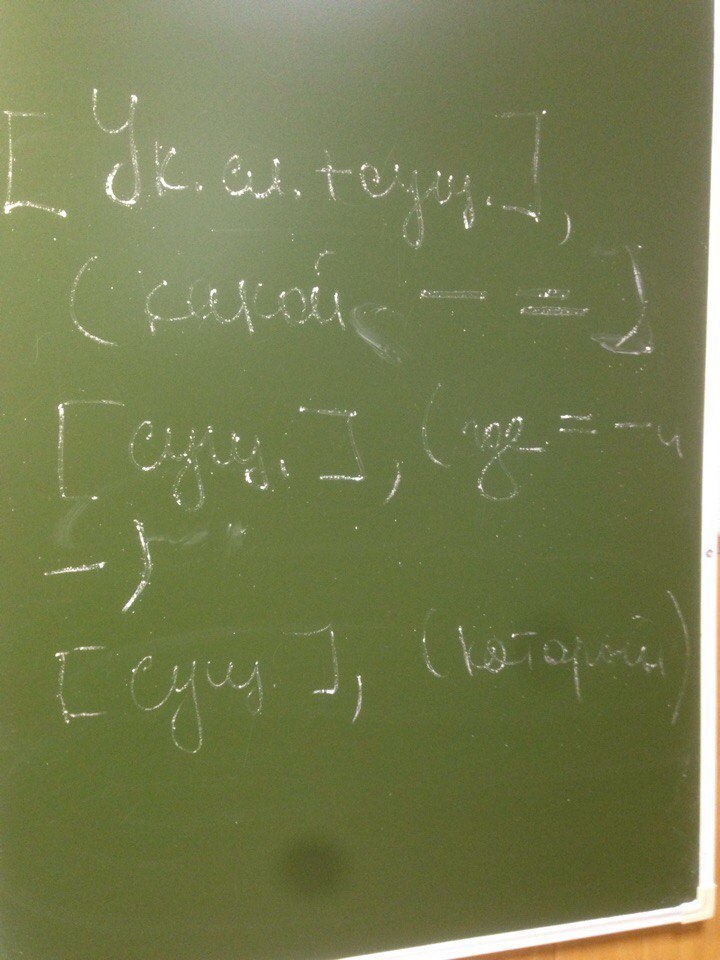 [ Ук. сл. + сущ. ],
( какой — = )
[ сущ. ], ( где = — и
— )
[ сущ ], ( который )